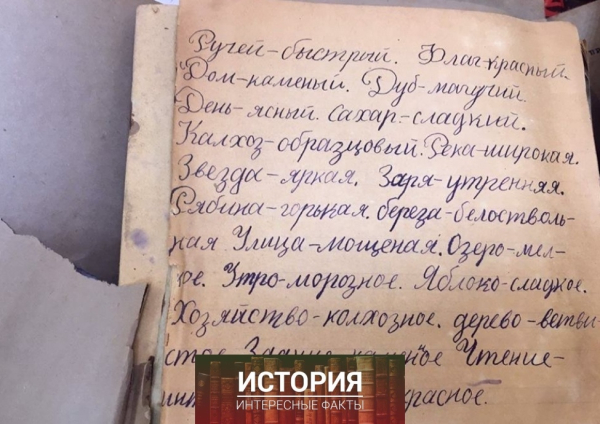 Ручей-быстрый. Флаг-красный.
Дом-каменый. Дуб-магучий.
День-ясный. Сахар-сладкий.
Калхоз-образцовый. Река-широкая.
Звезда-яркая. Заря-утренняя.
Рябина-горькая. береза-белостволь-
ная. Улица-мощеная. Озеро-мел-
ое. Утро-морозное. Яблоко-сладкое.
Хозяйство-колхозное. дерево-ветви-
стое. Здание Чтение-
красное.
ИСТОРИЯ
ИНТЕРЕСНЫЕ ФАКТЫ